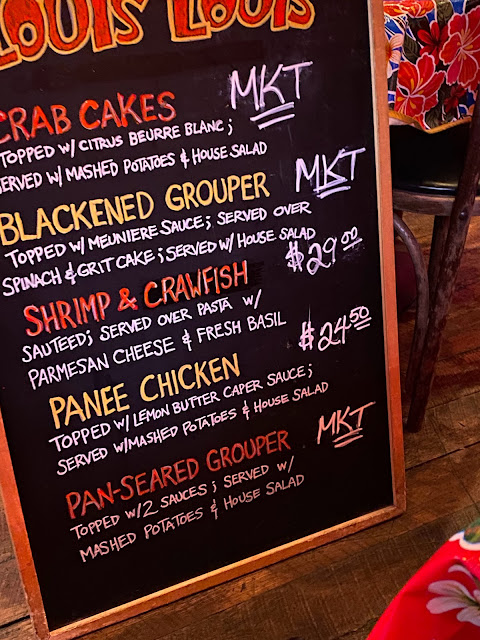 LOUIS LOUIS
CRAB CAKES MKT
TOPPED W/ CITRUS BEURRE BLANC;
SERVED W/ MASHED POTATOES & HOUSE SALAD
BLACKENED GROUPER MKT
TOPPED W/ MEUNIERE SAUCE; SERVED OVER
SPINACH & GRIT CAKE; SERVED W/ HOUSE SALAD
SHRIMP & CRAWFISH $29.00
SAUTEED; SERVED OVER PASTA W/
PARMESAN CHEESE & FRESH BASIL
PANEE CHICKEN $24.50
TOPPED W/ LEMON BUTTER CAPER SAUCE;
SERVED W/MASHED POTATOES & HOUSE SALAD
PAN-SEARED GROUPER MKT
TOPPED W/2 SAUCES; SERVED W/
MASHED POTATOES & HOUSE SALAD